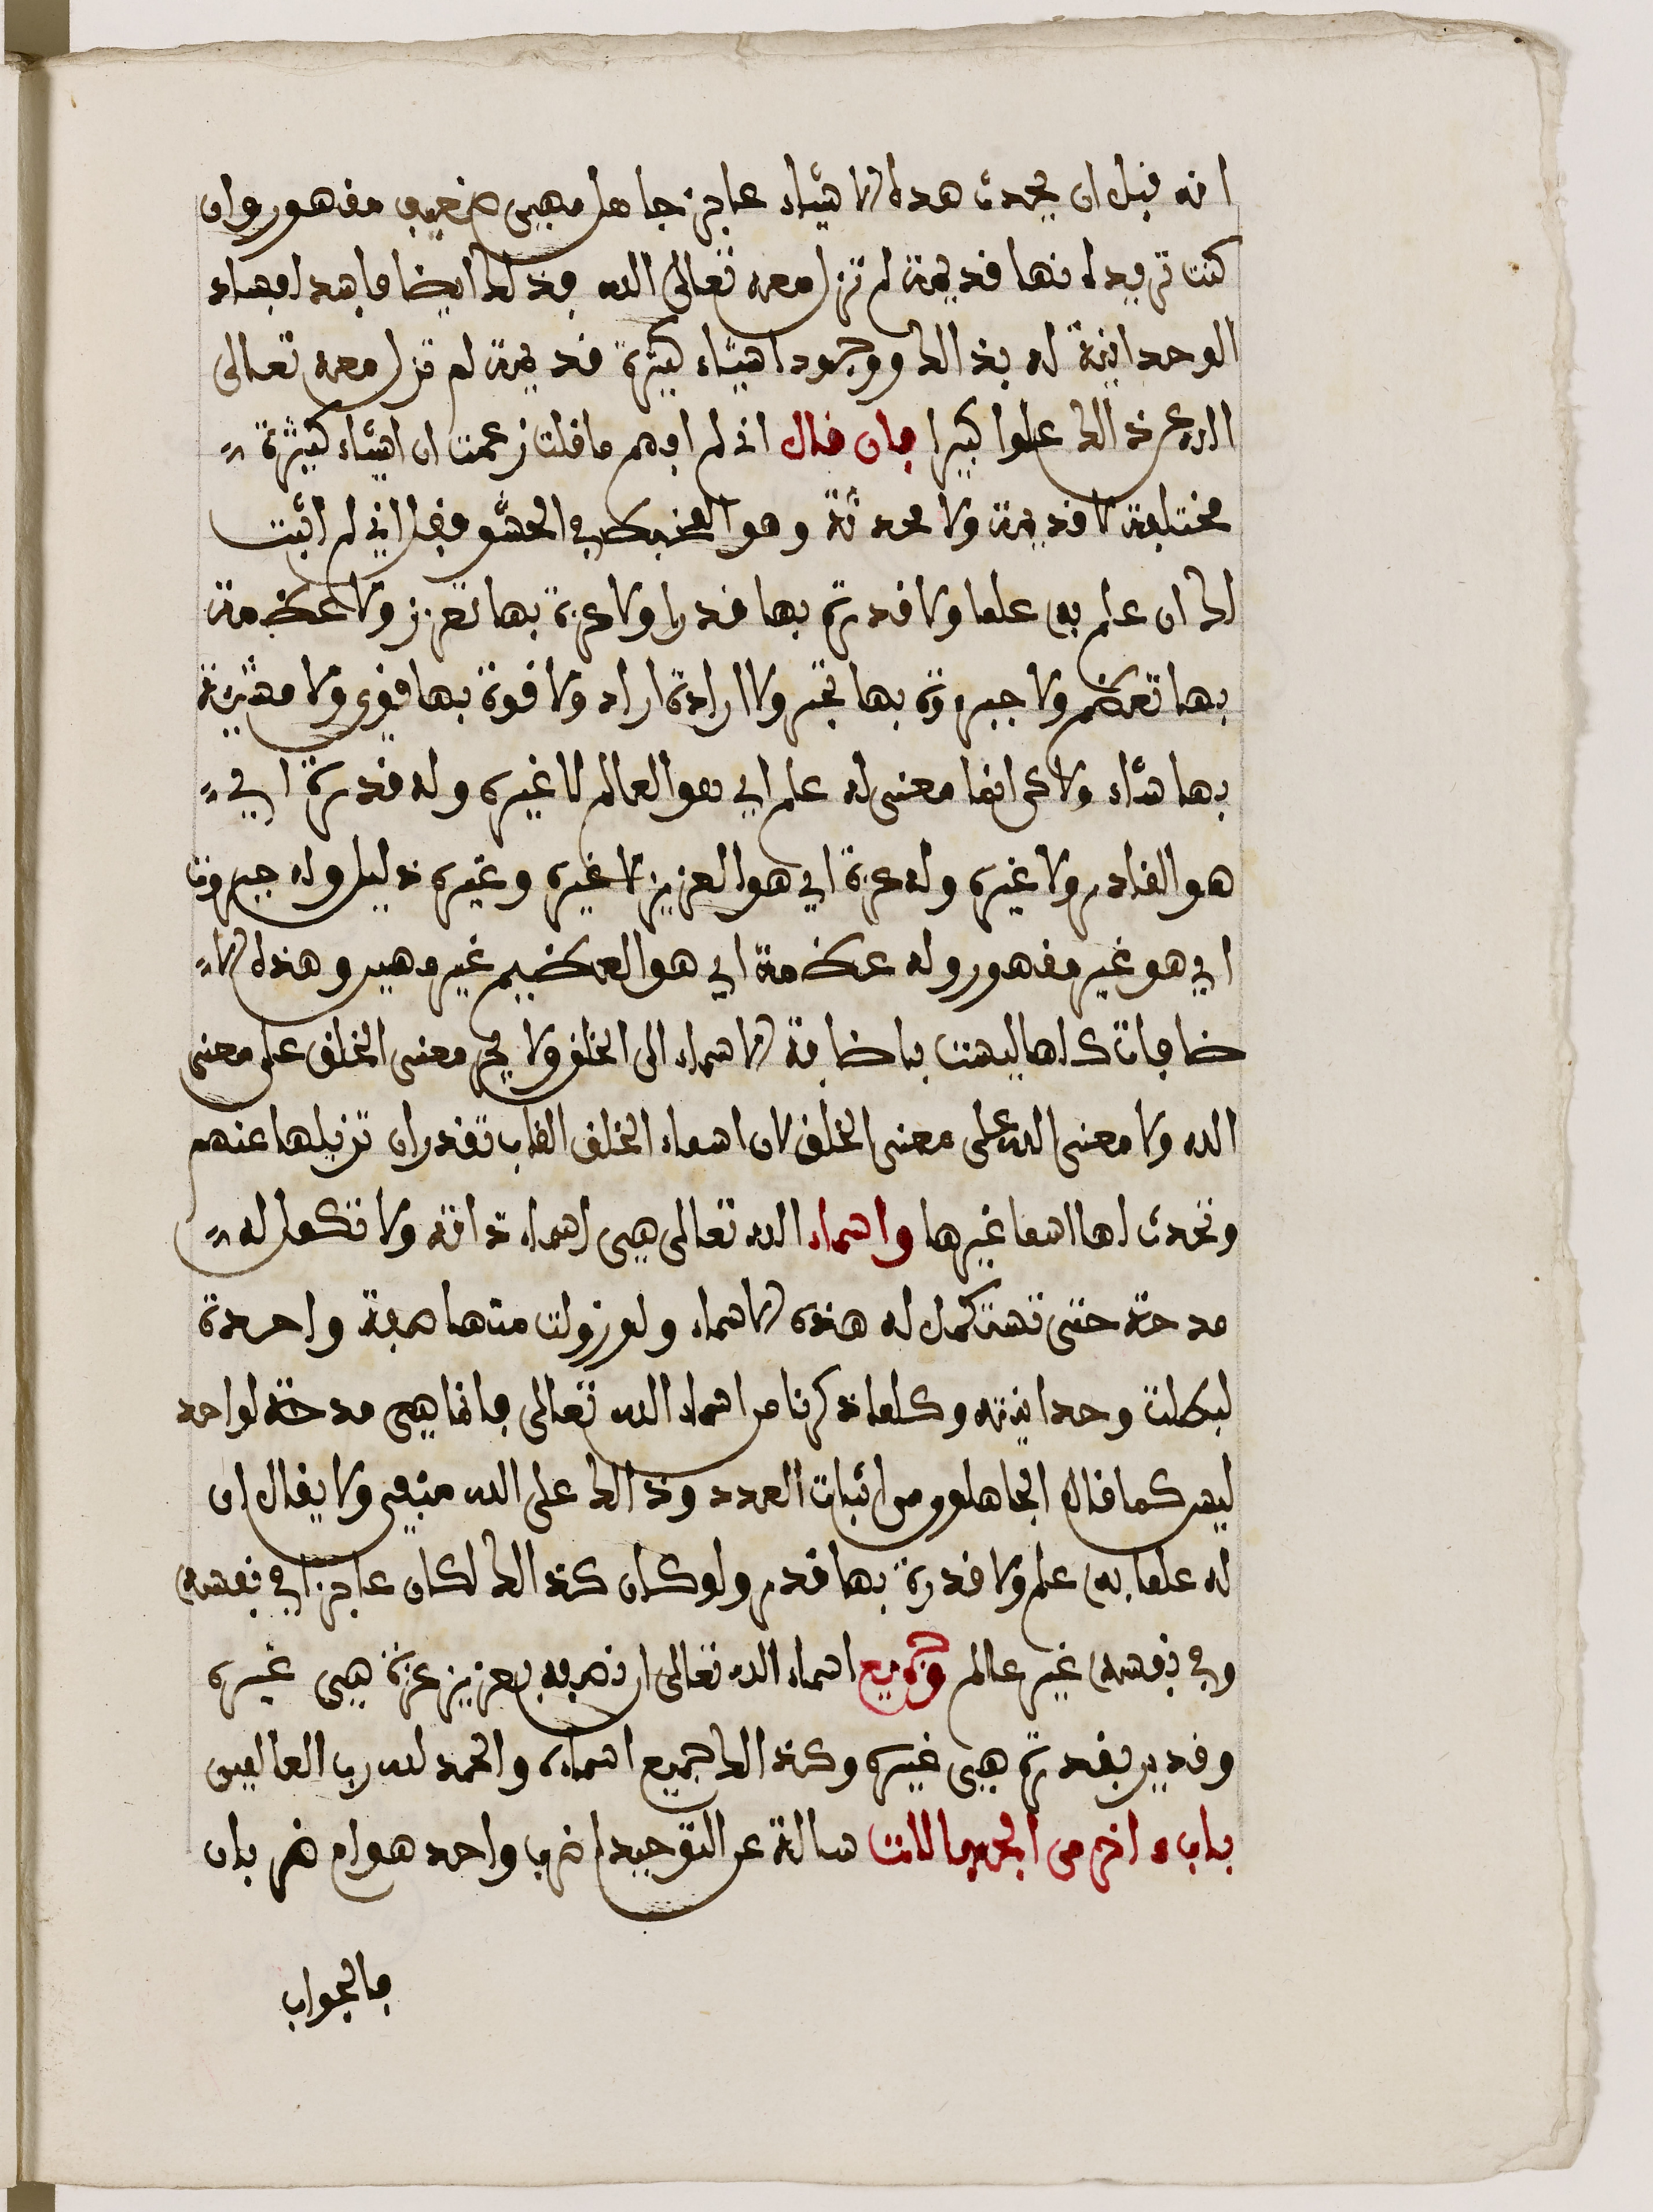 انه قبل ان يحدث هذه الاشياء عاجز جاهل مهين ضعيف مقهور وان
كنت تريد انها قديمة لم تزل معه تعالى الله فذلك ايضا فاسد افساد
الوحدانية له بذالك ووجود اشياء كثيرة قديمة لم تزل معه تعالى
الله عن ذالك علوا كبيرا فان قال اني لم افهم ما قلت زعمت ان اشياء كثيرة
مختلفة لا قديمة ولا محدثة وهو الضبط في الحشو فيقل اني لم اثبت
لك ان علم به علما ولا قدرة بها قدرا ولا عزة بها تعزز ولا عظمة
بها تعظم ولا جبروة بها تجبر ولا ارادة اراد ولا قوة بها قوي ولا مشية
بها شاء ولاكن انما معنى له علم اي هو العالم لا غيره وله قدرة اي
هو القادر ولا غيره وله عزة اي هو العزيز لا غيره وغيره ذليل وله جبروت
اي هو غير مقهور وله عظمة اي هو العظيم غير مهين وهذه الا
ضافات كلها ليست باضافة الاسماء الى الخلق ولا يجر معنى الخلق على معنى
الله ولا معنى الله على معنى الخلق لان اسماء الخلق القاب تقدر ان تزيلها عنهم
وتحدث لها اسما غيرها واسماء الله تعالى هي اسماء ذاته ولا تكمل له
مدحة حتى تستكمل له هذه الاسماء ولو زولت منها صفة واحدة
لبطلت وحدانيته وكلما ذكرنا من اسماء الله تعالى فانما هي مدحة لواحد
ليس كما قال الجاهلون من اثبات العدد وذالك على الله منفي ولا يقال ان
له علما به علم ولا قدرة بها قدر ولو كان كذالك لكان عاجزا في نفسه
وفي نفسه غير عالم وجميع اسماء الله تعالى ان نصفه بعزيز عزة هي غيره
وقدير بقدرة هي غيره وكذالك جميع اسماءه والحمد لله رب العالمين
باب ءاخر من الجهالات سالة عن التوحيد اضرب واحد هو ام ضربان
فالجواب